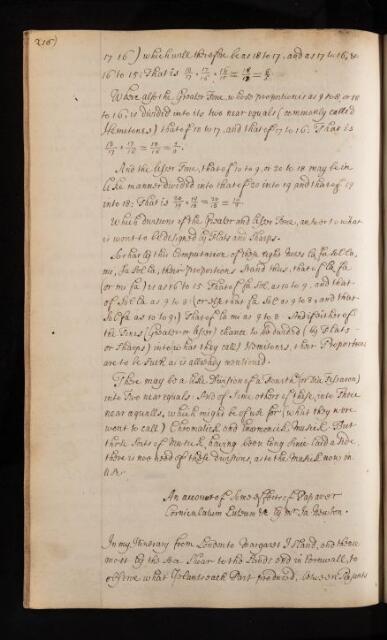 216)
17 16) which will therefore be as 18 to 17, and as 17 to 16, &
16 to 15; That is
Where also the Greater Tone, whose proportion is as 9 to 8, or 18
to 16, is divided into its two near equals (commonly called
Hemitones) that of 18 to 17, and that of 17 to 16; That is
18/17 × 17/16 = 18/16 = 9/8.
And the lesser Tone, that of 10 to 9, or 20 to 18 may be in
like manner divided into that of 20 into 19 and that of 19
into 18: That is 20/19 × 19/18 = 20/18 = 10/9
Which divisions of the Greater and lesser Tone, answer to what
is wont to be designed by Flats and Sharps.
So that by this Computation of these eight Notes La, fa, sol, la,
mi, fa, sol, la, their proportions stand thus, that of La fa
(or mi fa) is as 16 to 15 That of fa sol, as 10 to 9, and that
of sol la as 9 to 8: (or that fa sol as 9 to 8, and that
sol la as 10 to 9) That of la mi as 9 to 8. And if either of
the Tones (Greater or lesser) chance to be divided (by Flats
or Sharps) into what they call Hemitones, their Proportions
are to be such as is already mentioned.
There may be a like Division of a Fourth (or Dia Tessaron)
into Two near equals: And of some others of these, into Three
near equalls, which might be of use for (what they were
wont to call) Chromatick and Enarmonick Musick. But
those sorts of Musick, having been long since laid aside,
there is now no need of these divisions, as to the Musick now in
use.
An account of some effects of Papaver
Corniculatum Luteum &c by Mr Ja: Newton.
In my Itinerary from London to Margaret Island, and thence
most by the Sea Shoar to the Lands End in Cornwall, to
observe what Plants each Part produced,